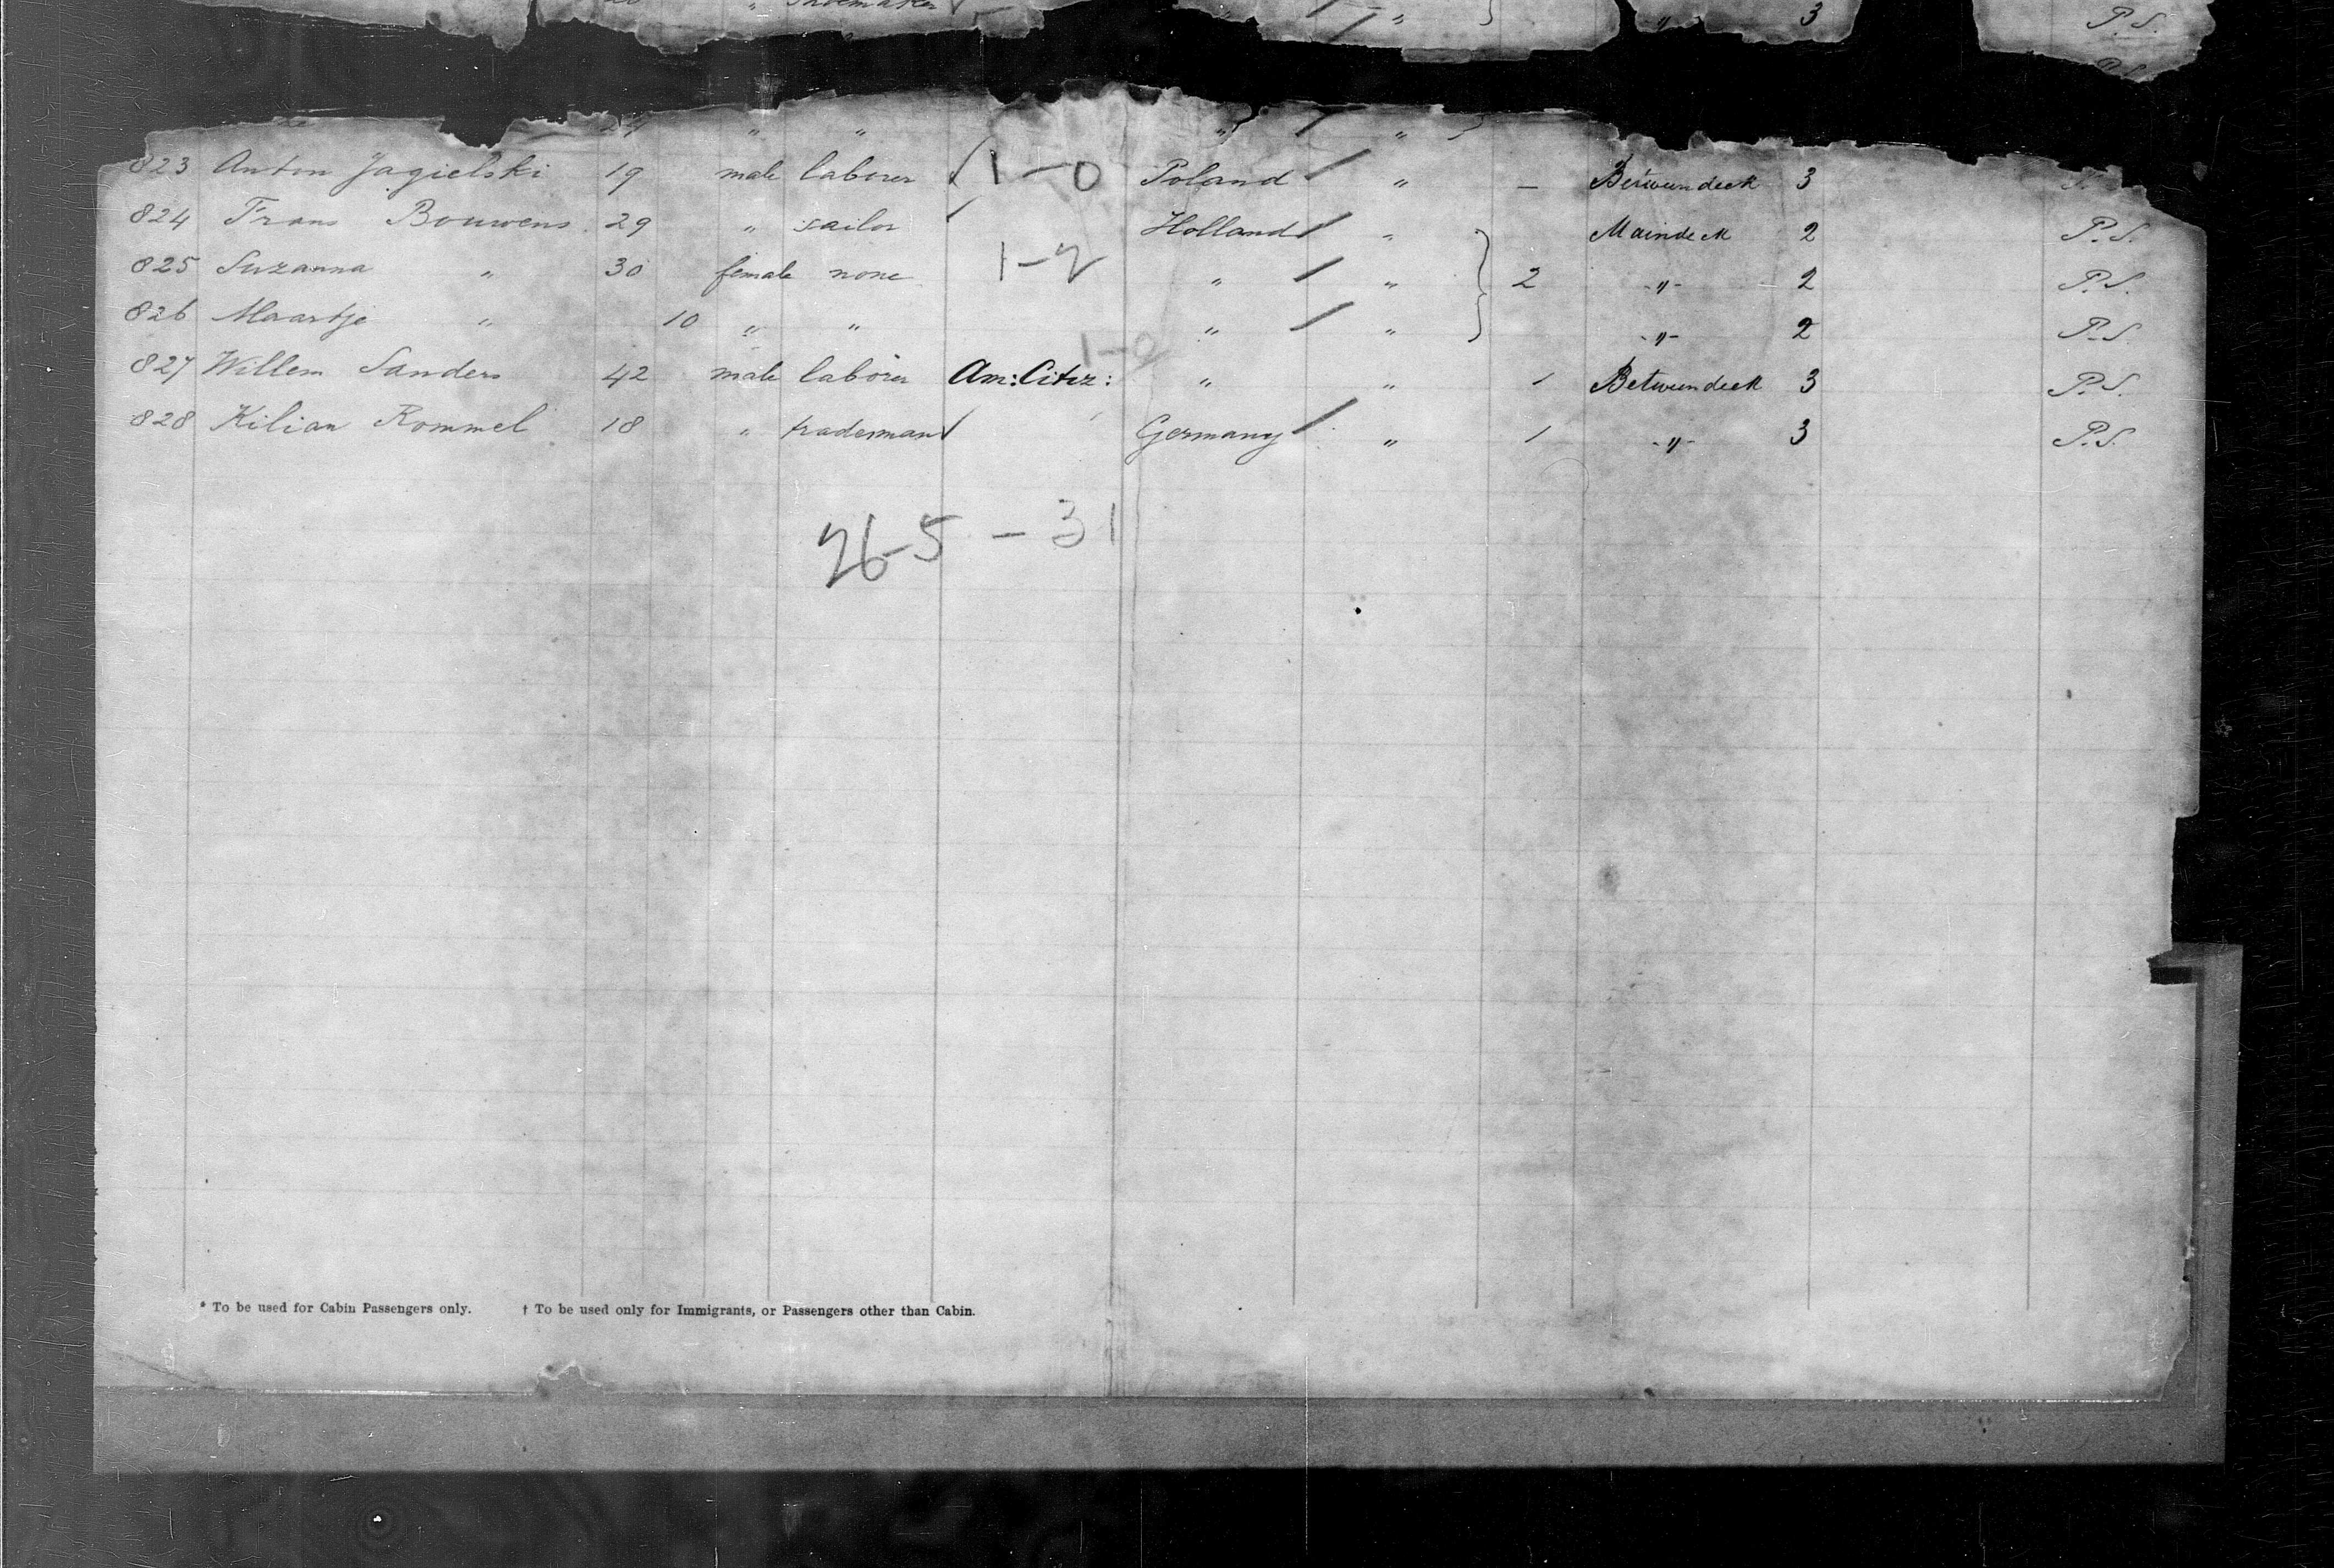 Shoemaker " 3 P.S.
P.S.
" " " "
823 Anton Jagielski 19 male laborer 1-0 Poland / " — Betweendeck 3
824 Frans Bouwens 29 " sailor Holland / " Maindeck 2 P.S.
825 Suzanna " 30 female none 1-2 " / " 2 -"- 2 P.S.
826 Maartje " 10 " " " / " -"- 2 P.S.
827 Willem Sanders 42 male laborer Am: Citiz: " " 1 Betweendeck 3 P.S.
828 Kilian Rommel 18 " tradesman Germany / " 1 -"- 3 P.S.
26-5 - 31
* To be used for Cabin Passengers only. † To be used only for Immigrants, or Passengers other than Cabin.